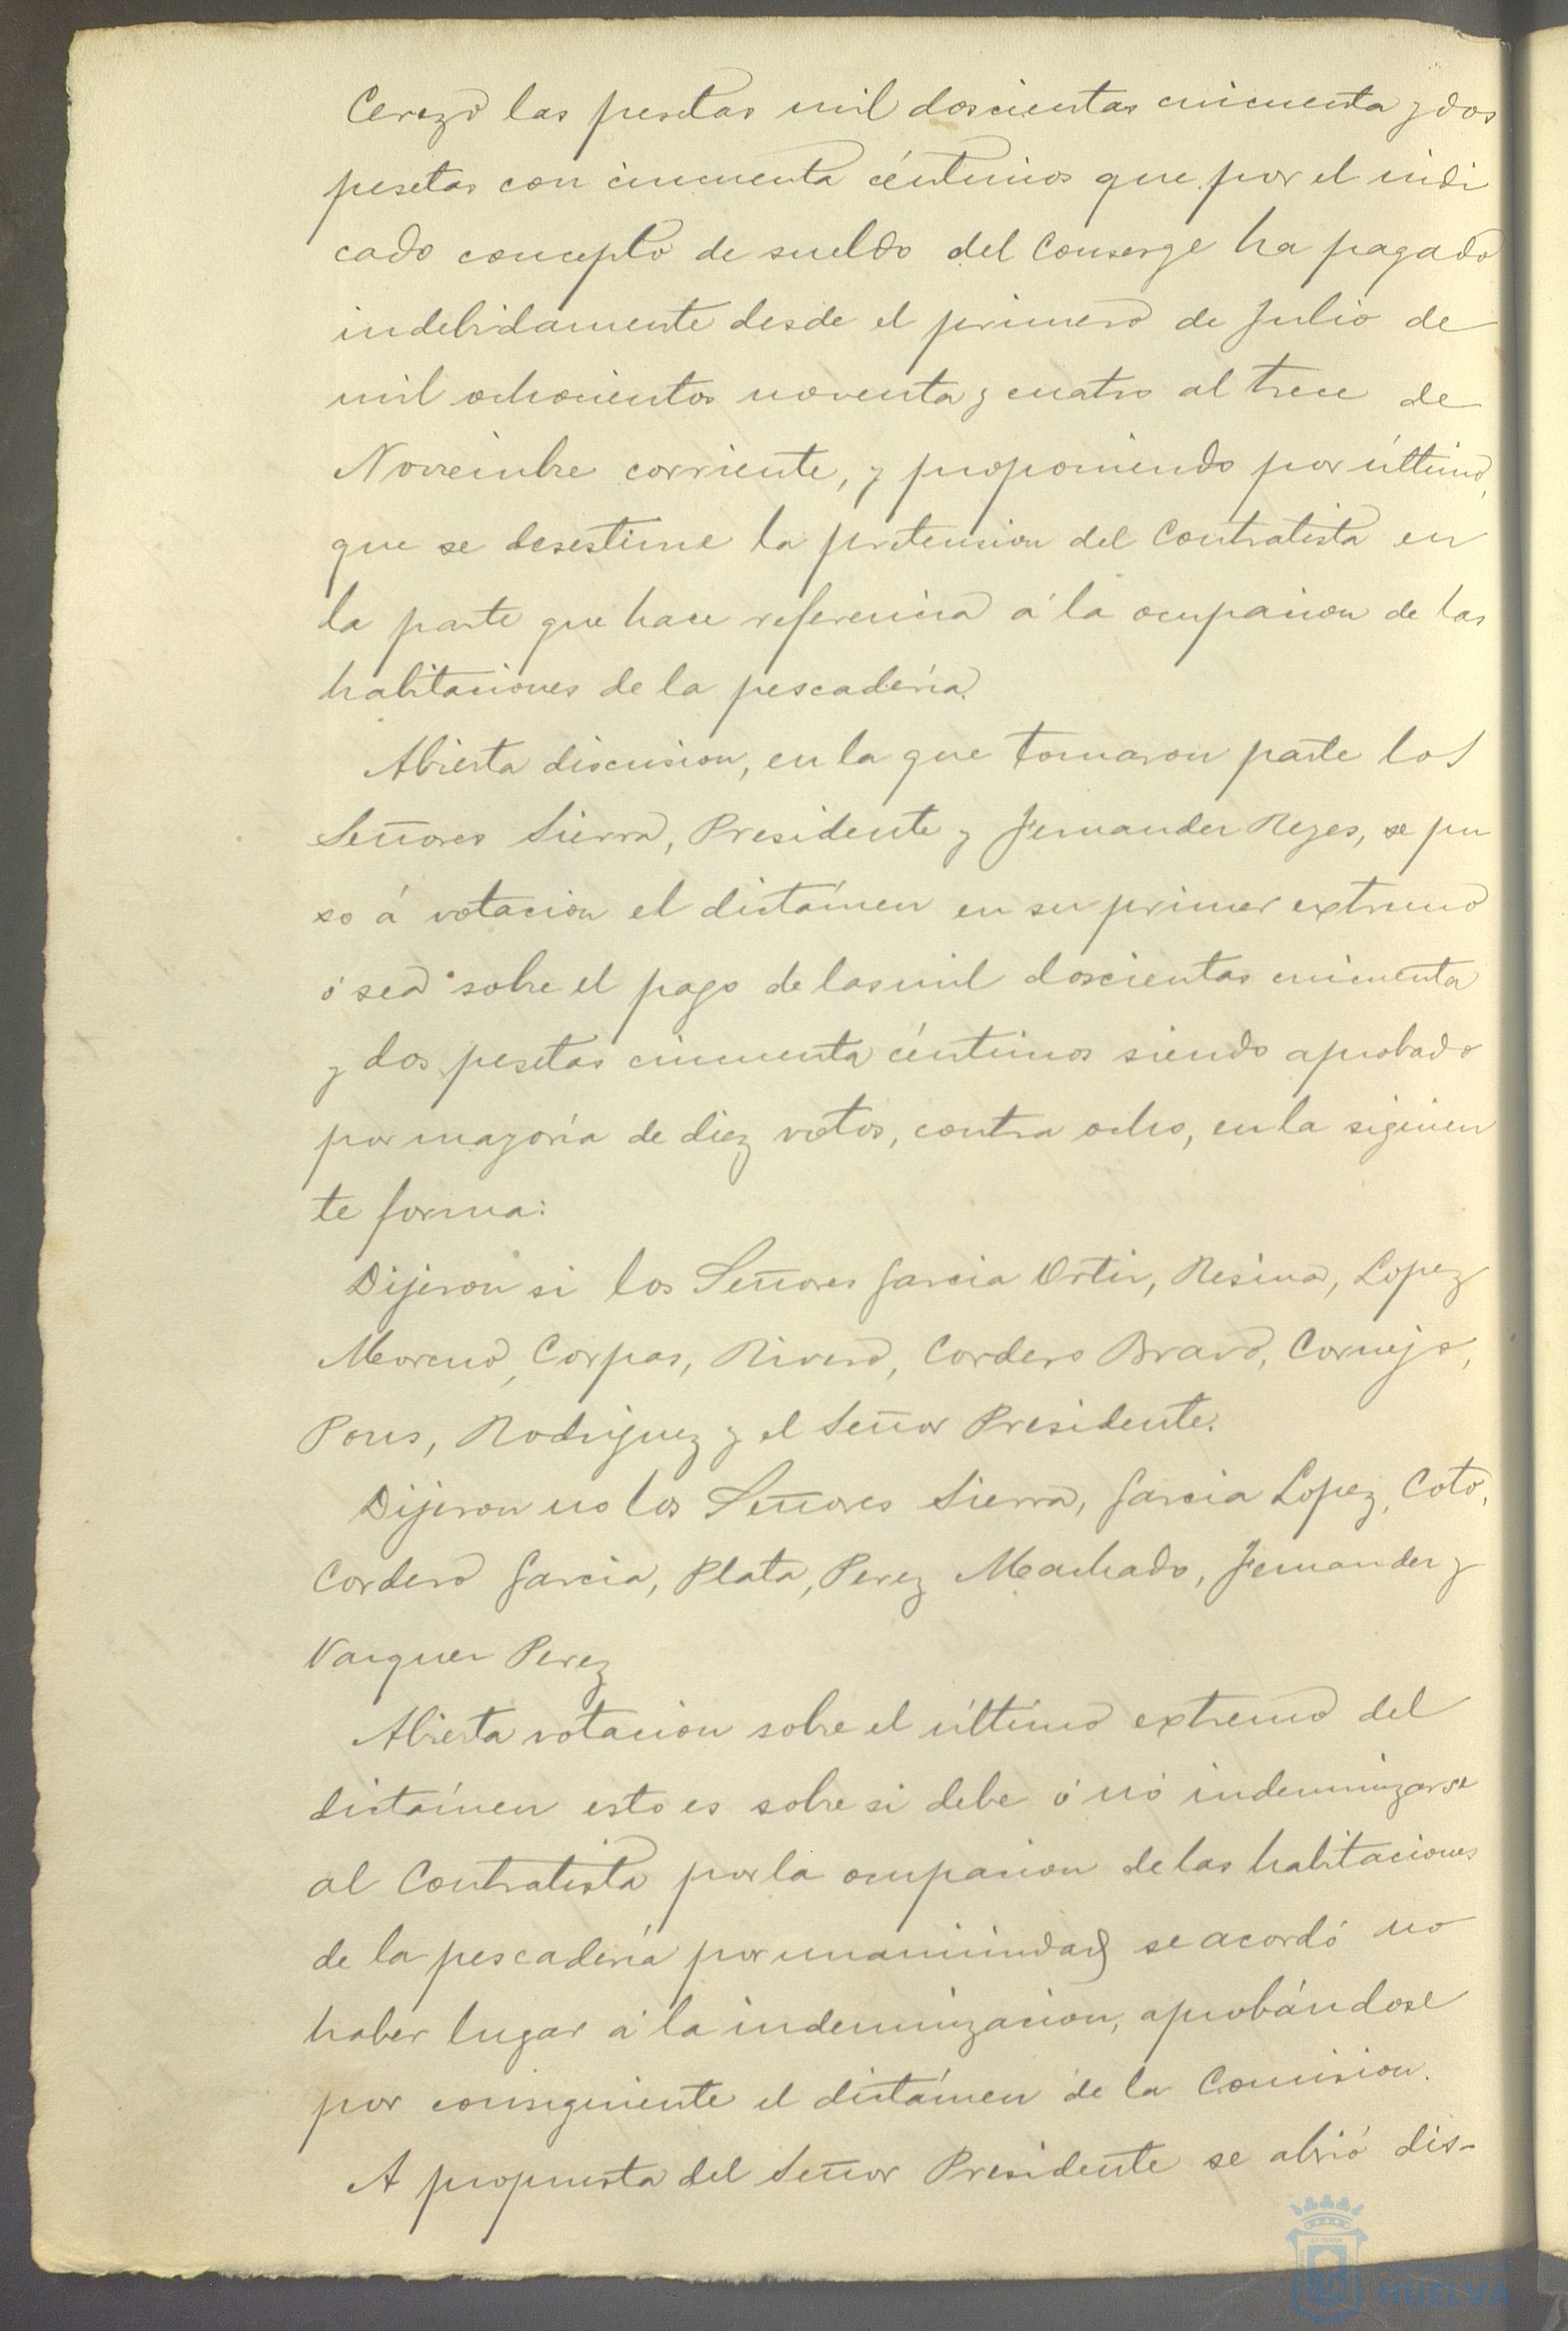 Cerezo las pesetas mil doscientas cincuenta y dos
pesetas con cincuenta céntimos que por el indi
cado concepto de sueldo del Conserge ha pagado
indebidamente desde el primero de Julio de
mil ochocientos noventa y cuatro al trece de
Noviembre corriente, y proponiendo por último,
que se desestime la pretension del Contratista en
la parte que hace referencia á la ocupacion de las
habitaciones de la pescadería.
Abierta discusion, en la que tomaron parte los
Señores Sierra, Presidente y Fernandez Reyes, se pu
so á votacion el dictámen en su primer extremo
ó sea sobre el pago de las mil doscientas cincuenta
y dos pesetas cincuenta céntimos siendo aprobado
por mayoría de diez votos, contra ocho, en la siguien
te forma:
Dijeron si los Señores Garcia Ortiz, Resina, Lopez
Moreno, Corpas, Rivero, Cordero Bravo, Cornejo,
Pons, Rodriguez y el Señor Presidente.
Dijeron no los Señores Sierra, Garcia Lopez, Coto,
Cordero Garcia, Plata, Perez Machado, Fernandez y
Vazquez Perez
Abierta votacion sobre el último extremo del
dictámen esto es sobre si debe ó nó indemnizarse
al Contratista por la ocupacion de las habitaciones
de la pescadería por unanimidad se acordó no
haber lugar á la indemnizacion, aprobándose
por consiguiente el dictámen de la Comision.
A propuesta del Señor Presidente se abrió dis-
HUELVA